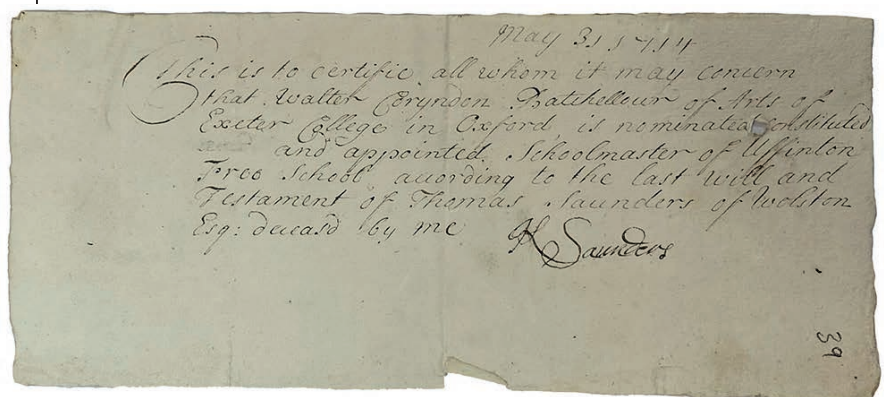 May 31 1714
This is to certifie all whom it may concern
that Walter Coryndon Batchellour of Arts of
Exeter College in Oxford, is nominated constituted
and appointed Schoolmaster of Uffinton
Free School according to the last will and
Testament of Thomas Saunders of Wolston
Esq: deceas'd by me
Saunders
39